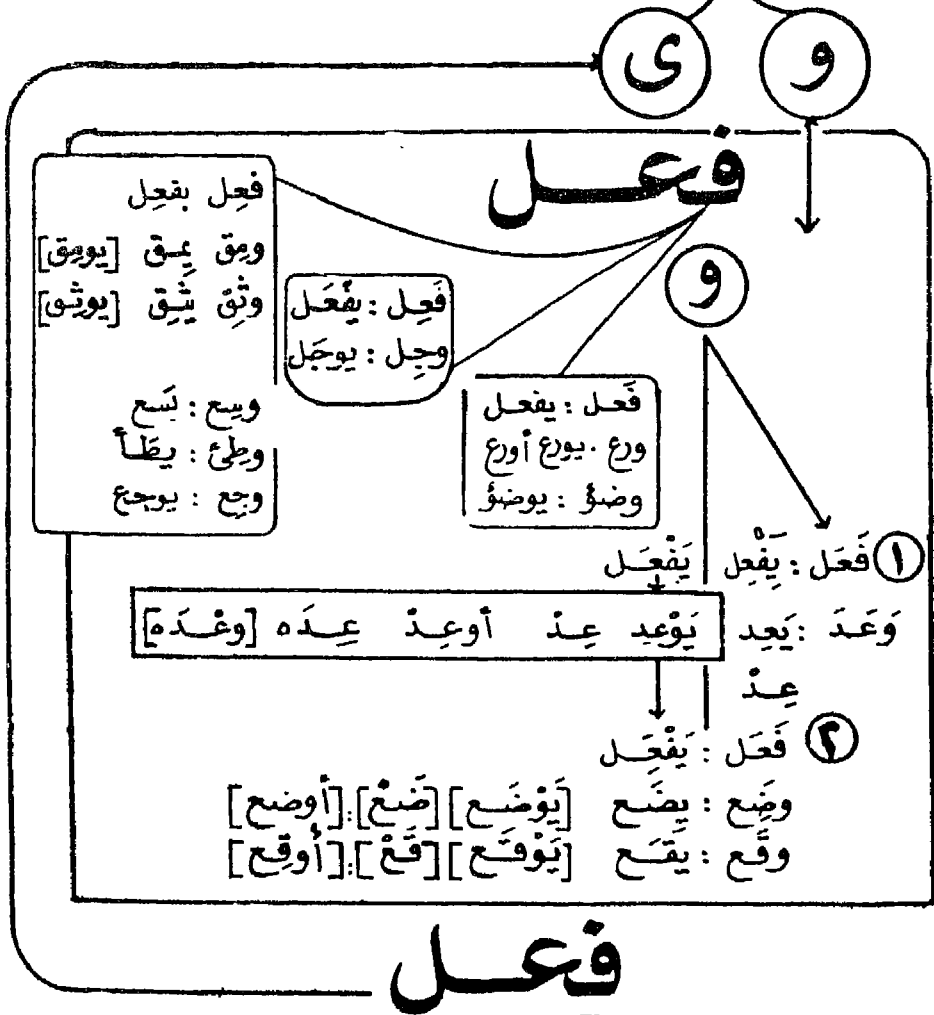 و ى
فعل
و
فعِل بفعِل
ومِق يمِـق [يومِق]
وثِق يَثِـق [يوثِـق]
وسِع : يَسَع
وطِئ : يطَـأ
وجِع : يوجع
فَعِـل : يفْعَـل
وجِـل : يوجَـل
فَعـل : يفعـل
ورع . يورع أورع
وضـؤ : يوضـؤ
١ فَعَـل : يَفْعِل يَفْعِـل
وَعَـدَ : يَعِد يَوْعِد عِـدْ أوعِـدْ عِـدَه [وعْـدَه]
عِـدْ
٢ فَعَـل : يَفْعَـل
وضَع : يضَـع [يَوْضَـع] [ضَـعْ]:[أوضع]
وقَـع : يقَـع [يَوْقَـع] [قَـعْ]:[أوقِع]
فعـل